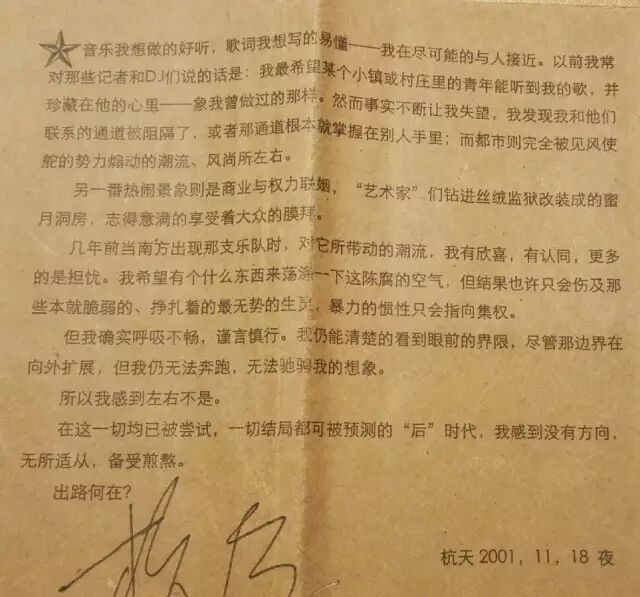 音乐我想做的好听，歌词我想写的易懂——我在尽可能的与人接近。以前我常
对那些记者和DJ们说的话是：我最希望某个小镇或村庄里的青年能听到我的歌，并
珍藏在他的心里——象我曾做过的那样。然而事实不断让我失望，我发现我和他们
联系的通道被阻隔了，或者那通道根本就掌握在别人手里；而都市则完全被见风使
舵的势力煽动的潮流、风尚所左右。
另一番热闹景象则是商业与权力联姻，“艺术家”们钻进丝绒监狱改装成的蜜
月洞房，志得意满的享受着大众的膜拜。
几年前当南方出现那支乐队时，对它所带动的潮流，我有欣喜，有认同，更多
的是担忧。我希望有个什么东西来荡涤一下这陈腐的空气，但结果也许只会伤及那
些本就脆弱的、挣扎着的最无势的生灵，暴力的惯性只会指向集权。
但我确实呼吸不畅，谨言慎行。我仍能清楚的看到眼前的界限，尽管那边界在
向外扩展，但我仍无法奔跑，无法驰骋我的想象。
所以我感到左右不是。
在这一切均已被尝试，一切结局都可被预测的“后”时代，我感到没有方向，
无所适从，备受煎熬。
出路何在？
杭天 2001，11，18 夜